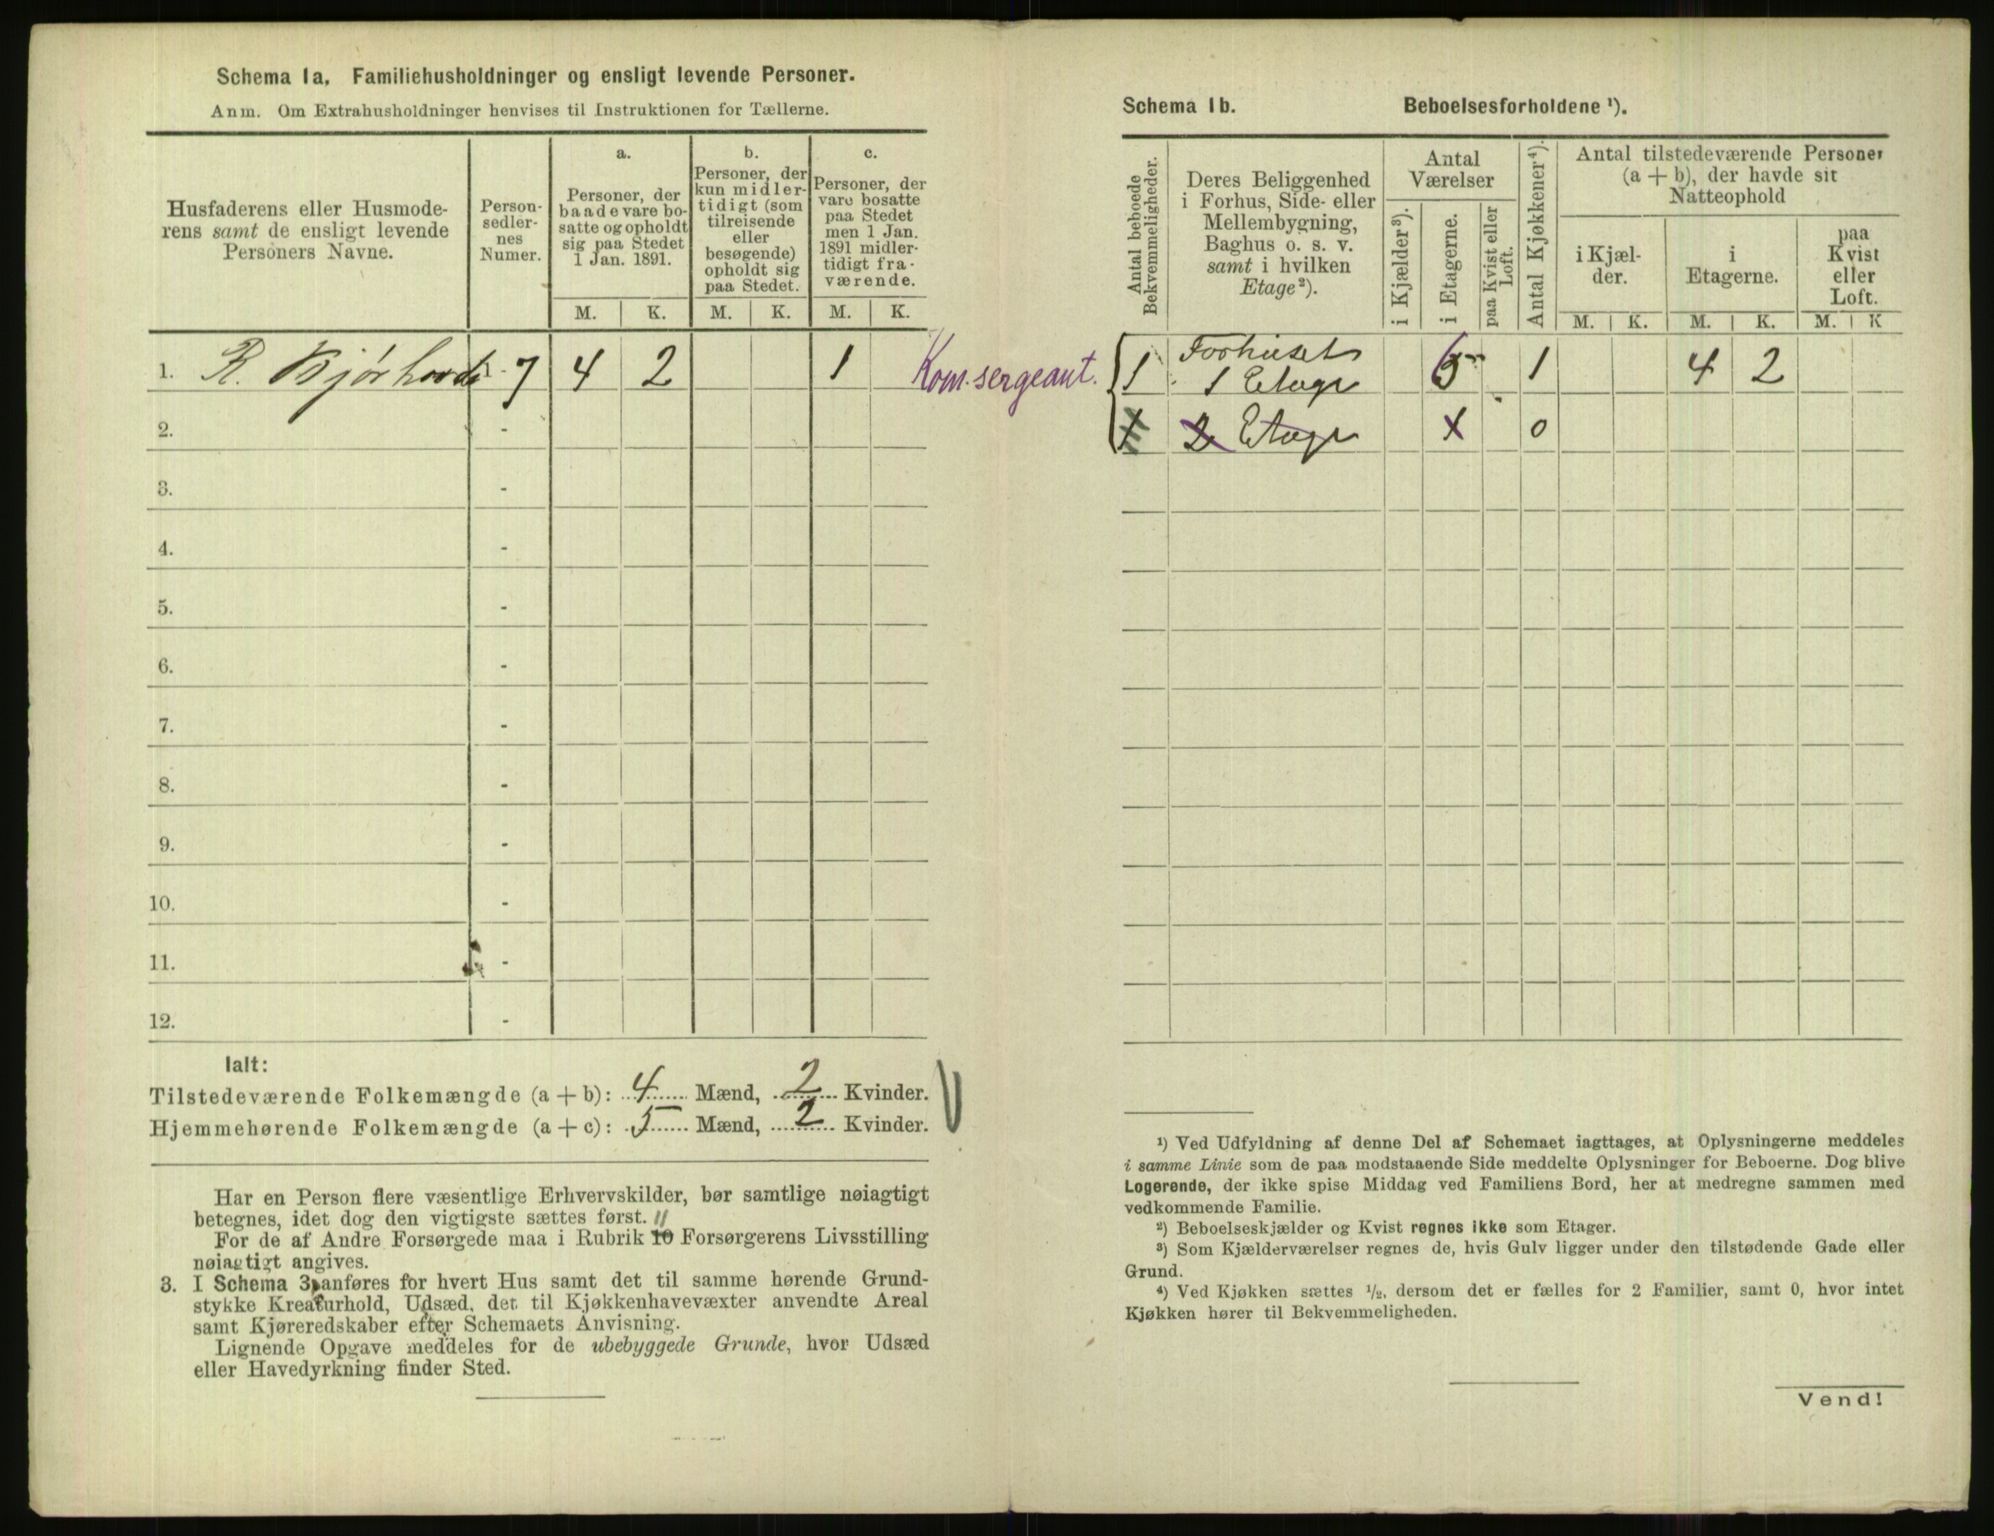 Schema 1a. Familiehusholdninger og ensligt levende Personer.
Anm. Om Extrahusholdninger henvises til Instruktionen for Tællerne.
Husfaderens eller Husmode-
rens samt de ensligt levende
Personers Navne.
Person-
sedler-
nes
Numer.
a.
Personer, der
baade vare bo-
satte og opholdt
sig paa Stedet
1 Jan. 1891.
b.
Personer, der
kun midler-
tidigt (som
tilreisende
eller
besøgende)
opholdt sig
paa Stedet.
c.
Personer, der
vare bosatte
paa Stedet
men 1 Jan.
1891 midler-
tidigt fra-
værende.
M. K. M. K. M. K.
1. R. Bjørhovde 1 - 7 4 2 1 Kom. sergeant.
2. -
3. -
4. -
5. -
6. -
7. -
8. -
9. -
10. -
11. -
12. -
Ialt:
Tilstedeværende Folkemængde (a + b): 4 Mænd, 2 Kvinder.
Hjemmehørende Folkemængde (a + c): 5 Mænd, 2 Kvinder.
Har en Person flere væsentlige Erhvervskilder, bør samtlige nøiagtigt
betegnes, idet dog den vigtigste sættes først. 11
For de af Andre Forsørgede maa i Rubrik 10 Forsørgerens Livsstilling
nøiagtigt angives.
3. I Schema 3 anføres for hvert Hus samt det til samme hørende Grund-
stykke Kreaturhold, Udsæd, det til Kjøkkenhavevæxter anvendte Areal
samt Kjøreredskaber efter Schemaets Anvisning.
Lignende Opgave meddeles for de ubebyggede Grunde, hvor Udsæd
eller Havedyrkning finder Sted.
Schema 1b. Beboelsesforholdene ¹).
Antal beboede
Bekvemmeligheder.
Deres Beliggenhed
i Forhus, Side- eller
Mellembygning,
Baghus o. s. v.
samt i hvilken
Etage²).
Antal
Værelser
i Kjælder³).
i Etagerne.
paa Kvist eller
Loft.
Antal Kjøkkener⁴).
Antal tilstedeværende Personer
(a + b), der havde sit
Natteophold
i Kjæl-
der.
i
Etagerne.
paa
Kvist
eller
Loft.
M. K. M. K. M. K
1 Forhuset
1 Etage 5 1 4 2
1 2 Etage X 0
¹) Ved Udfyldning af denne Del af Schemaet iagttages, at Oplysningerne meddeles
i samme Linie som de paa modstaaende Side meddelte Oplysninger for Beboerne. Dog blive
Logerende, der ikke spise Middag ved Familiens Bord, her at medregne sammen med
vedkommende Familie.
²) Beboelseskjælder og Kvist regnes ikke som Etager.
³) Som Kjælderværelser regnes de, hvis Gulv ligger under den tilstødende Gade eller
Grund.
⁴) Ved Kjøkken sættes ½, dersom det er fælles for 2 Familier, samt 0, hvor intet
Kjøkken hører til Bekvemmeligheden.
Vend!